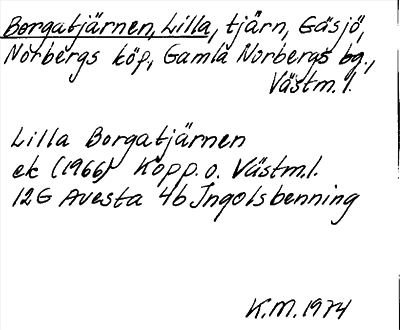 Borgatjärnen, Lilla, tjärn, Gäsjö,
Norbergs köp, Gamla Norbergs bg.,
Västm. l.
Lilla Borgatjärnen
ek (1966) Kopp. o. Västm.l.
12G Avesta 4b Ingolsbenning
K.M. 1974